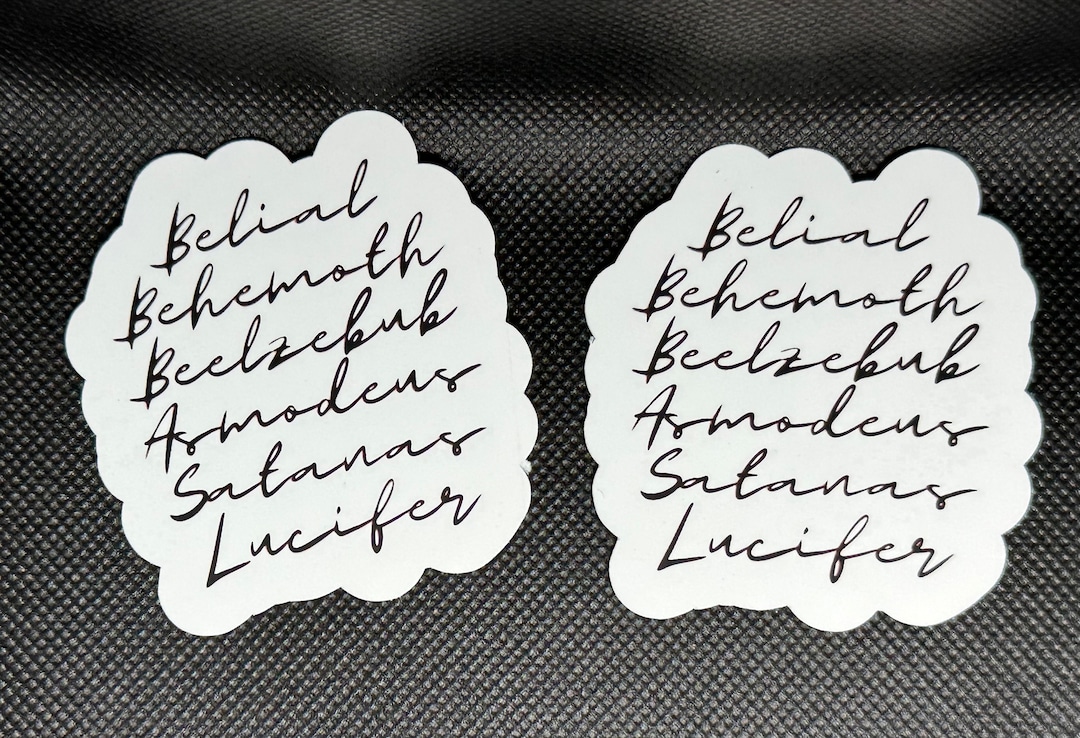 Belial
Behemoth
Beelzebub
Asmodeus
Satanas
Lucifer
Belial
Behemoth
Beelzebub
Asmodeus
Satanas
Lucifer